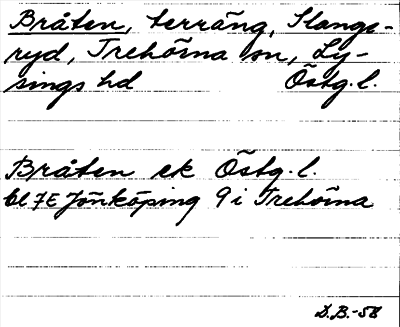 Bråten, terräng, Slangs-
ryd, Trehörna sn, Ly-
sings hd Östg. l.
Bråten ek Östg. l.
bl 7E Jönköping 9 i Trehörna
D.B.-58